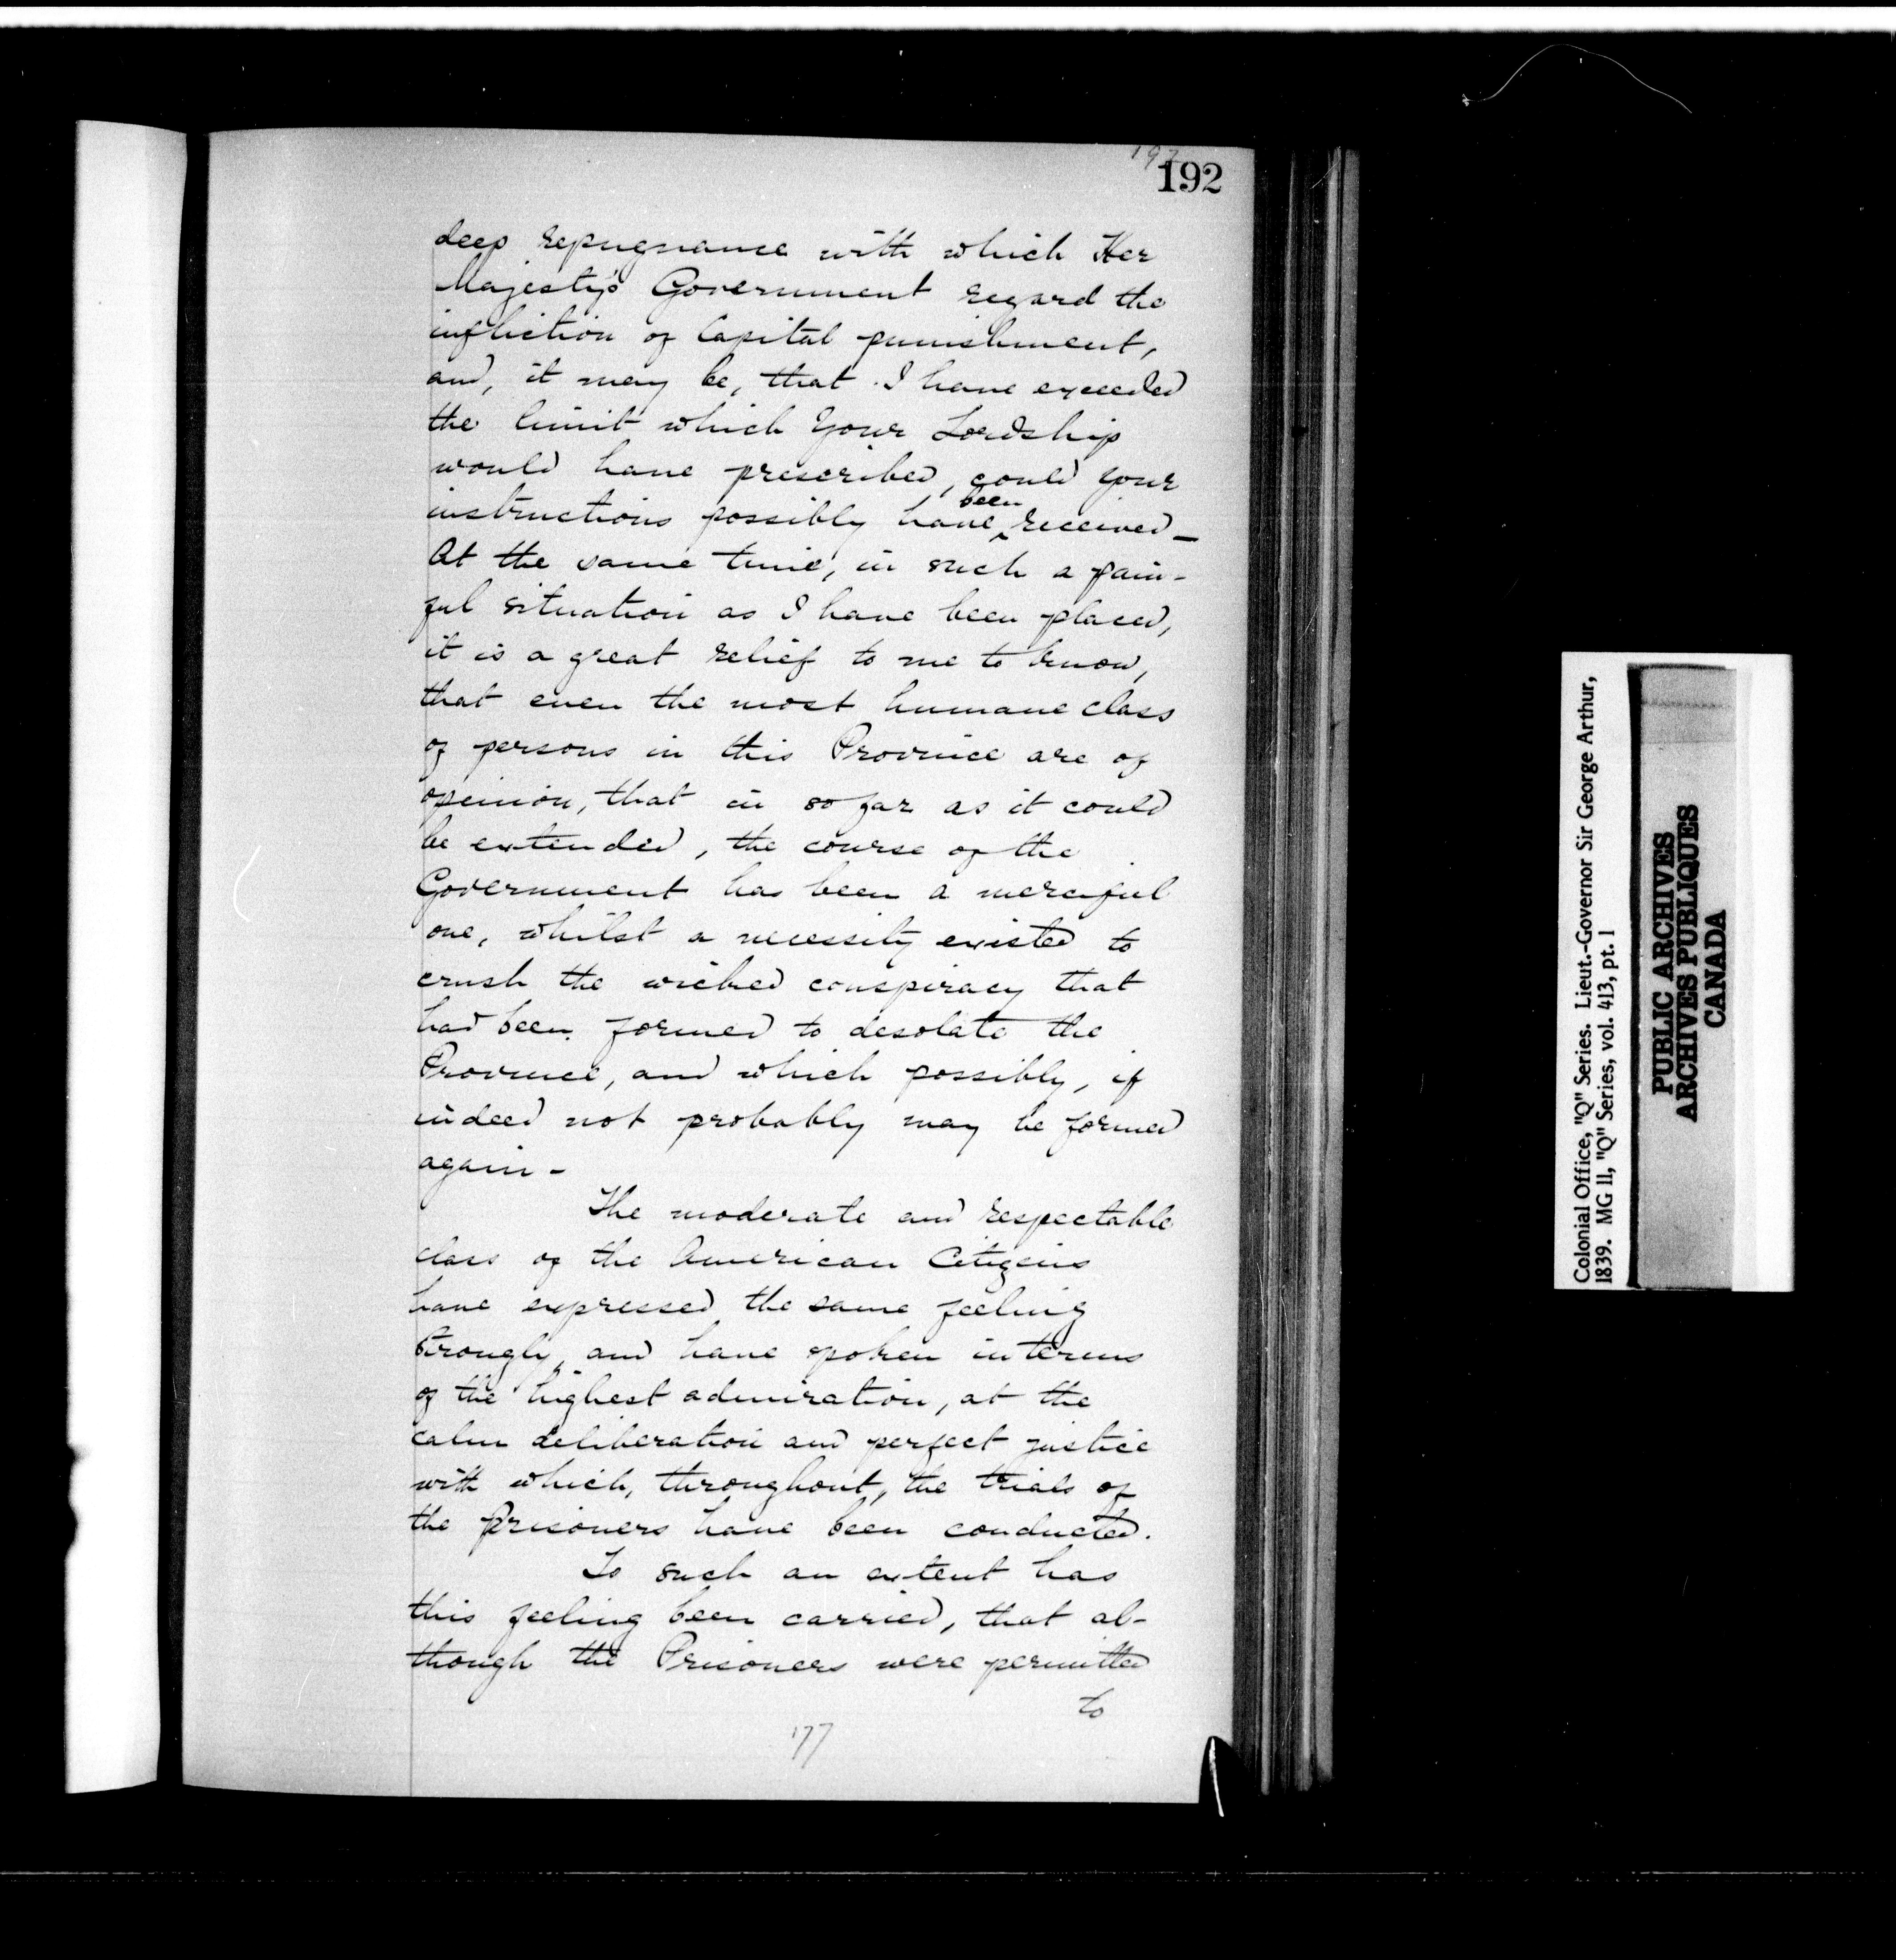 192
192
deep repugnance with which Her
Majesty's Government regard the
infliction of Capital punishment,
and, it may be, that I have exceeded
the limit which Your Lordship
would have prescribed, could your
been
instructions possibly have received—
At the same time, in such a pain-
ful situation as I have been placed,
it is a great relief to me to know,
that even the most humane class
of persons in this Province are of
opinion, that in so far as it could
be extended, the course of the
Government has been a merciful
one, whilst a necessity existed to
crush the wicked conspiracy that
had been formed to desolate the
Province, and which possibly, if
indeed not probably may be formed
again—
The moderate and respectable
class of the American Citizens
have expressed the same feeling
strongly, and have spoken in terms
of the highest admiration, at the
calm deliberation and perfect justice
with which, throughout, the trials of
the Prisoners have been conducted.
To such an extent has
this feeling been carried, that al-
though the Prisoners were permitted
to
177
Colonial Office, "Q" Series. Lieut.-Governor Sir George Arthur,
1839. MG 11, "Q" Series, vol. 413, pt. 1
PUBLIC ARCHIVES
ARCHIVES PUBLIQUES
CANADA